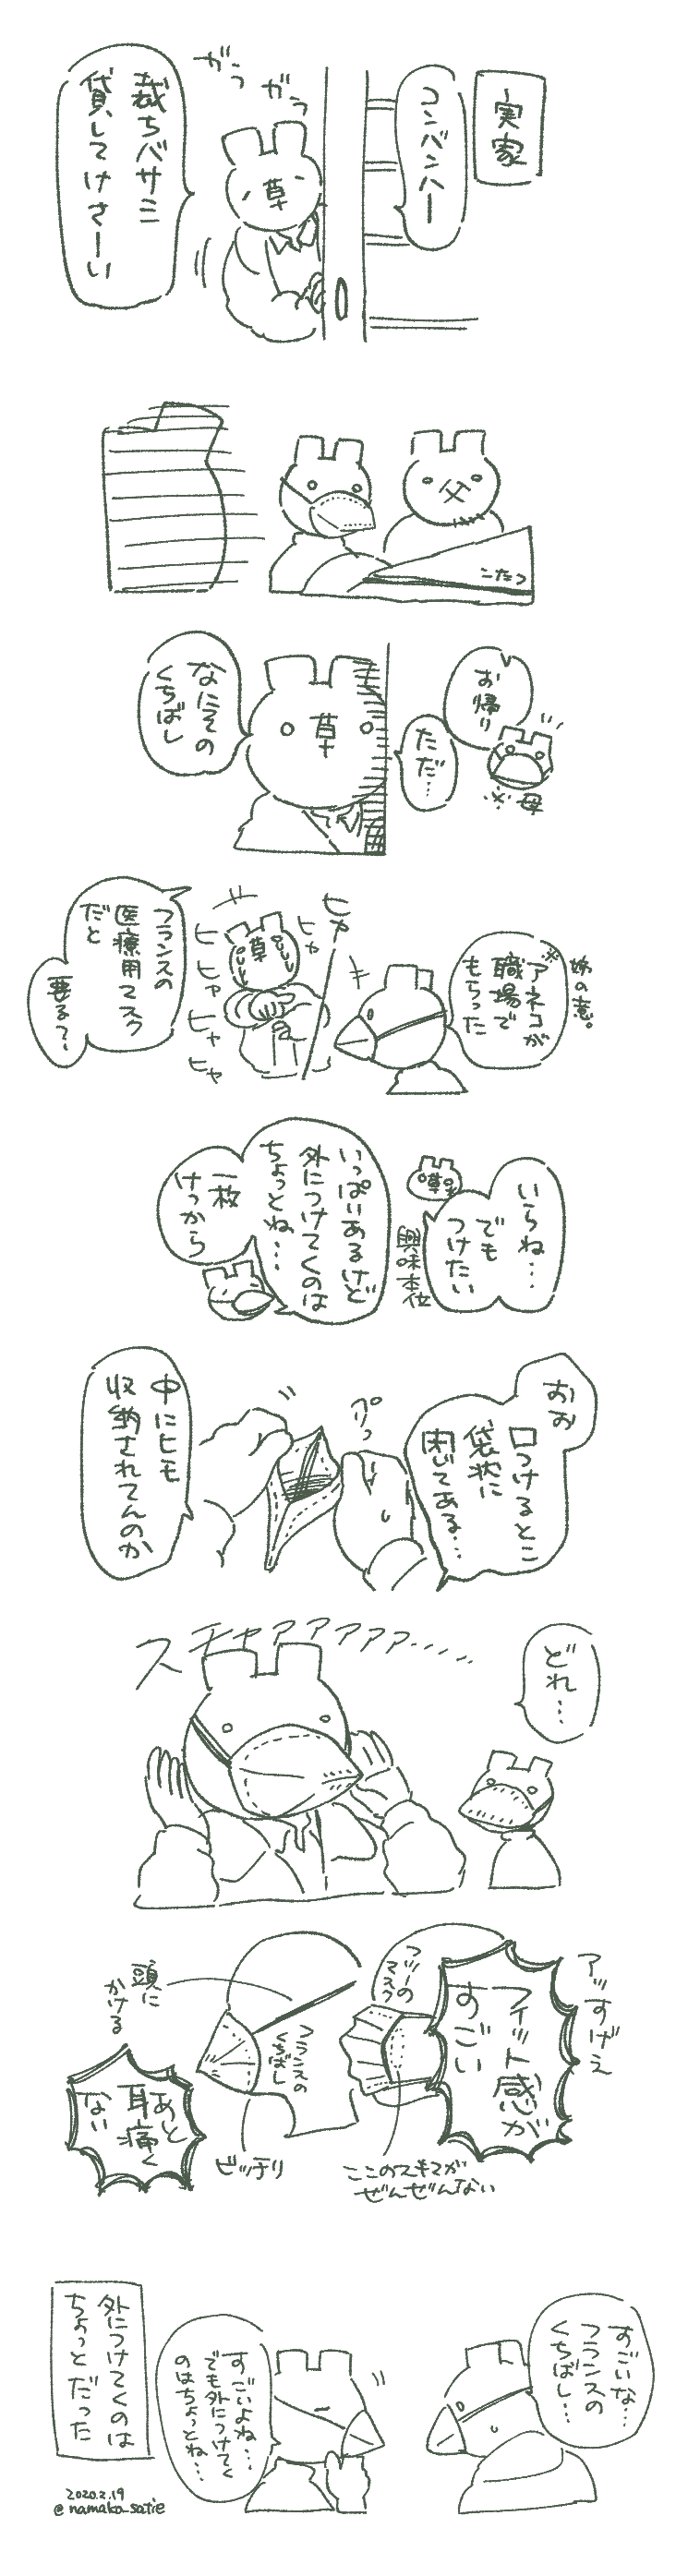 実家
コンバンハー
ガラ
ガラ
裁ちバサミ
貸してけさーい
草
父
こたつ
お帰り
※母
ただ…
草
なにその
くちばし
姉の意。
※アネコが
職場で
もらった
ヒャ
ヒャ
ヒ
ヒャ
ヒャ
ヒャ
草
フランスの
医療用マスク
だと
要る?
いらね…
でも
つけたい
草
興味本位
いっぱいあるけど
外につけてくのは
ちょっとね…
一枚
けっから
おお
口つけるとこ
袋状に
中にヒモ
収納されてんのか
どれ…
スチャアアアアア‥‥‥
アッすげえ
フィット感が
すごい
フツーの
マスク
ここのスキマが
ぜんぜんない
フランスの
くちばし
ピッチリ
頭に
かける
あと
耳痛く
ない
すごいな…
フランスの
くちばし…
すごいよね…
でも外につけてく
のはちょっとね…
外につけてくのは
ちょっとだった
2020.2.19
@namako_satie